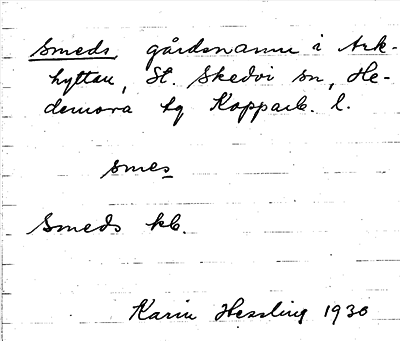 Smeds, gårdsnamn i Ark-
hyttan, St. Skedvi sn, He-
demora tg Kopparb. l.
smes
Smeds kb.
Karin Hessling 1930